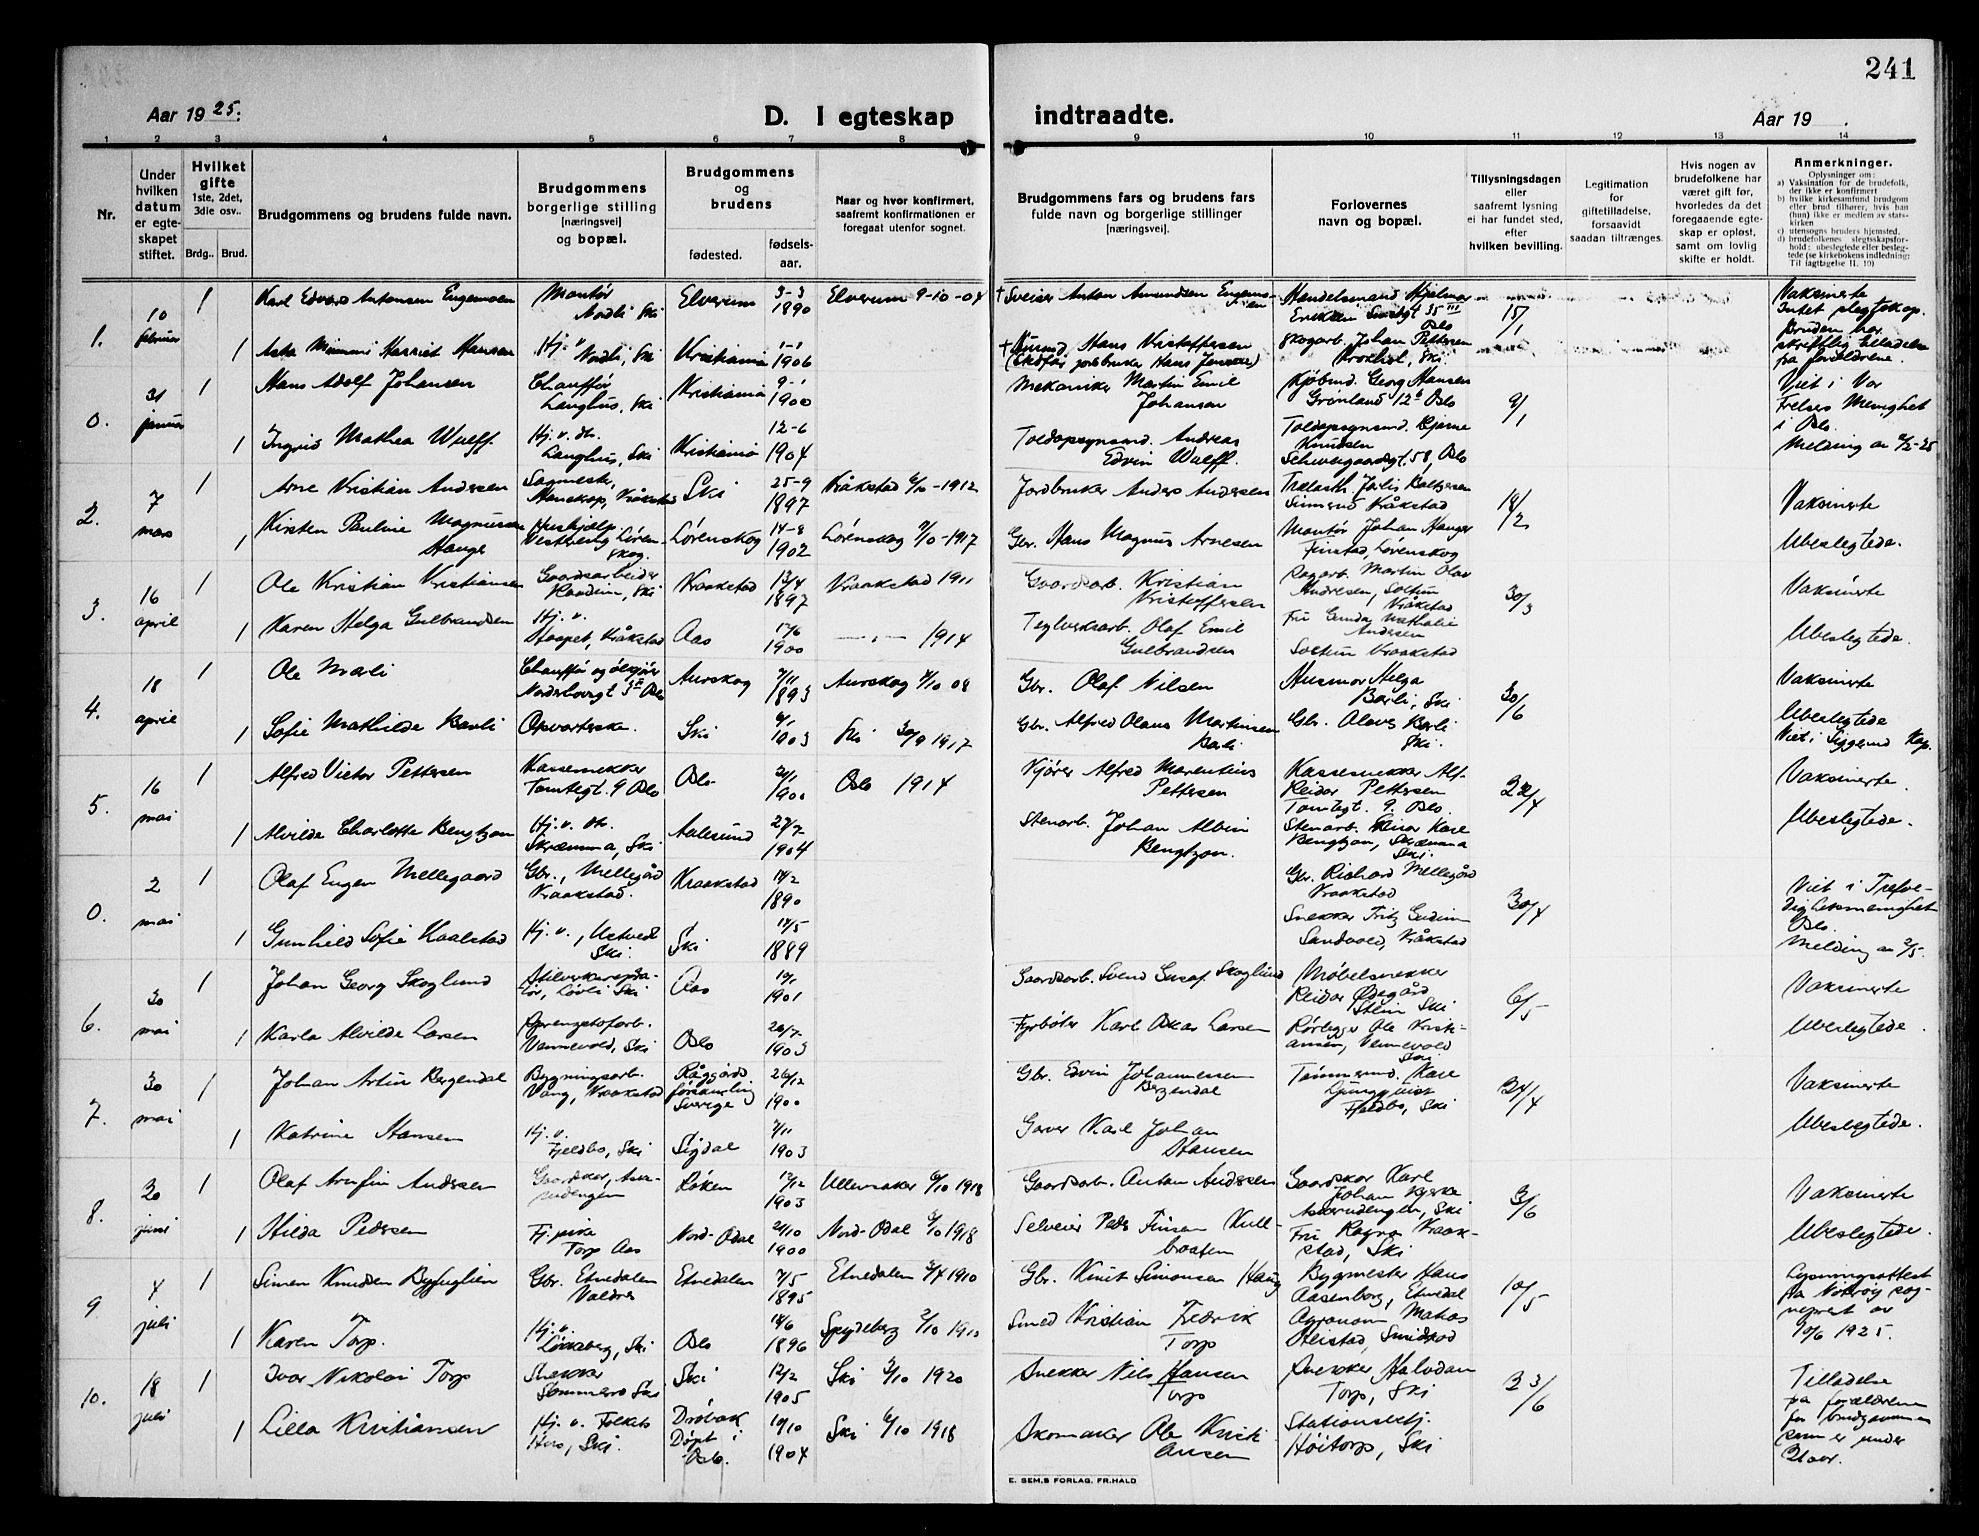 241
Aar 1925.
D. I egteskap indtraadte.
Aar 19
1 2 3 4 5 6 7 8 9 10 11 12 13 14
Nr.
Under hvilken datum er egteskapet stiftet.
Hvilket gifte 1ste, 2det, 3die osv..
Brdg.. Brud.
Brudgommens og brudens fulde navn.
Brudgommens borgerlige stilling [næringsvei] og bopæl.
Brudgommens og brudens
fødested.
fødselsaar.
Naar og hvor konfirmert, saafremt konfirmationen er foregaat utenfor sognet.
Brudgommens fars og brudens fars fulde navn og borgerlige stillinger [næringsvei].
Forlovernes navn og bopæl.
Tillysningsdagen eller saafremt lysning ei har fundet sted, efter hvilken bevilling.
Legitimation for giftetilladelse, forsaavidt saadan tiltrænges.
Hvis nogen av brudefolkene har været gift før, hvorledes da det foregaaende egteskap er opløst, samt om lovlig skifte er holdt.
Anmerkninger.
Oplysninger om:
a) Vaksination for de brudefolk, der ikke er konfirmert
b) hvilke kirkesamfund brudgom eller brud tilhører, hvis han (hun) ikke er medlem av statskirken
c) utensogns bruders hjemsted.
d) brudefolkenes slegtsskapsforhold: ubeslegtede eller beslegtede (se kirkebokens indledning: Til iagttagelse II. 10)
1. 10 februar
1 Karl Edvard Antonsen Engemoen Montør Nordli Ski Elverum 3-3 1890 Elverum 9-10-04 † Sveiser Anton Amundsen Engemoen Handelsmand Hjalmar Eriksen 35 III Oslo 15/1 Vaksinerte Intet slegtskap. Bruden har skriftlig tilladelse fra forældrene.
1 Asta Mimmi Harriet Hansen Hj. v. Nordli, Ski Kristiania 1-1 1906 † Hans Kristoffersen (Stedfar jordbruker Hans Jensen) Skogarb. Johan Pettersen Ski
0. 31 januar
1 Hans Adolf Johansen Chauffør Langhus, Ski Kristiania 9-1 1900 Mekaniker Martin Emil Johansen Kjøbmd. Georg Hansen Grønland 12 b Oslo 9/1 Viet i Vor Frelsers Menighet i Oslo. Melding av
1 Ingrid Mathea Wulff. Hj. v. do. Langhus, Ski Kristiania 12-6 1904 Toldopsynsmd. Andreas Edvin Wulff. Toldopsynsmd. Bjarne Knudsen Schweigaardsgt. 58, Oslo
2. 7 mars
1 Arne Kristian Andersen Sagmester, Kråkstad Ski 25-9 1897 Kråkstad 6/10-1912 Jordbruker Anders Andersen Kråkstad 18/2 Vaksinerte
1 Kirsten Pauline Magnussen Hauge Hushjelp Vestreng Lørenskog. Lørenskog 14-8 1902 Lørenskog 7/10-1917 Gbr. Hans Magnus Arnesen Montør Johan Hauger Finstad, Lørenskog Ubeslegtede.
3. 16 april
1 Ole Kristian Kristiansen Gaardsarbeider Haadem, Ski Kraakstad 13/4 1897 Kraakstad 1911 Gaardsarb. Kristian Kristoffersen Martin Olav Andresen, Kråkstad 30/3 Vaksinerte
1 Karen Helga Gulbrandsen Hj. v. Kråkstad Aas 17/6 1900 —"— 1914 Teglverksarb. Olaf Emil Gulbrandsen Fru Gunda Mathalie Andersen Kraakstad Ubeslegtede.
4. 18 april
1 Ole Mærli Chauffør og ølkjører 3 II Oslo Aurskog 7/11 1893 Aurskog 4/10 08 Gbr. Olaf Nilsen Husmor Helga Barli, Ski 30/6 Vaksinerte
1 Sofie Mathilde Barli Opvarterske. Ski 6/1 1903 Ski 30/9 1917 Gbr. Alfred Olaus Martinsen Barli Gbr. Olaus Barli Ski. Ubeslegtede Viet i Siggerud Kap.
5. 16 mai
1 Alfred Victor Pettersen Kassesnekker Tomtegt. 9 Oslo Oslo 2/1 1900 Oslo 1914 Kjører Alfred Marentius Pettersen Kassesnekker Alf Reidar Pettersen Tomtegt. 9. Oslo. 22/4 Vaksinerte.
1 Alvilda Charlotte Bengtzon Hj. v. do. Skræmma, Ski Aalesund 27/7 1904 Stenarb. Johan Albin Bengtzon. Stenarb. Einar Kåre Bengtzon, Skræmma Ski. Ubeslegtede.
0. 2 mai
1 Olaf Eugen Mellegaard Gbr., Mellegård Kraakstad. Kraakstad 14/2 1890 Gbr. Richard Mellegård Kraakstad 30/4 Viet i Trefoldighetsmenighet Oslo. Melding av 2/5.
1 Gunhild Sofie Kaalstad Hj. v., Ustvedt Ski. Ski 14/5 1889 Snekker Fritz Gudim Sandvold, Kråkstad
6. 30 mai
1 Johan Georg Skoglund Løvli Ski Aas 10/1 1901 Gaardsarb. Svend Gustaf Skoglund Møbelsnekker Reidar Ødegård Ski 6/5 Vaksinerte
1 Karla Alvilde Larsen Sprengstofarb. Vennevold, Ski Oslo 26/7 1903 Fyrbøter Karl Oskar Larsen Rørlegger Ole Kristiansen, Vennevold Ski Ubeslegtede.
7. 30 mai
1 Johan Artur Bergendal Bygningsarb. Vang, Kraakstad Råggärds församling Sverige 26/12 1900 Gbr. Edvin Johannessen Bergendal Tømmermd. Kåre Ljungquist Fjeldbo, Ski 24/4 Vaksinerte
1 Katrine Hansen Hj. v. Fjeldbo, Ski Sigdal 7/11 1903 Garver Karl Johan Hansen Ubeslegtede.
8. 20 juni
1 Olaf Arnfin Andersen Røken 17/12 1903 Ullensaker 6/10 1918 Gaardsarb. Anton Andersen Gaardskar Karl Johan Ski 3/6 Vaksinerte
1 Hilda Pedersen Tj. pike Torp Aas Nord-Odal 24/10 1900 Nord-Odal 6/10 1918 Selveier Peder Finsen Kullbraaten Fru Ragna Kraakstad, Ski Ubeslegtede.
9 4 juli
1 Simen Knudsen Byfuglien Gbr. Etnedalen Valdres Etnedalen 7/5 1895 Etnedalen 3/4 1910 Gbr. Knut Simonsen Haug Bygmester Hans Aasenborg, Etnedal 10/5 Lysningsattest fra av 10/6 1925.
1 Karen Torp. Hj. v. Ski Oslo 14/6 1896 Spydeberg 2/10 1910 Smed Kristian Fredrik Torp Agronom Mathias
10. 18 juli
1 Ivar Nikolai Torp Snekker Sommerro Ski Ski 12/2 1905 Ski 3/10 1920 Snekker Nils Hansen Torp Snekker Halvdan Torp, Ski 23/6 Tilladelse fra forældrene for brudgommen som er under 21 aar.
1 Lilla Kristiansen Hj. v. Folkets Hus, Ski. Drøbak Døpt i Oslo. 10/10 1904 Ski 6/10 1918 Skomaker Ole Kristiansen Stationsbetj. Høitorp, Ski
E. SEM.S FORLAG, FR.HALD